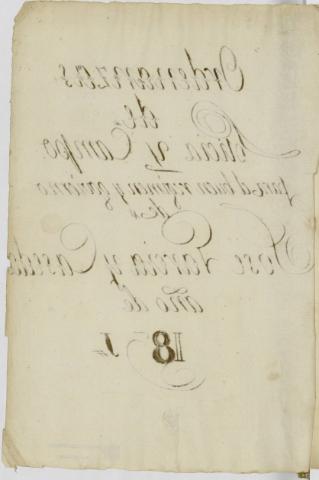 Ordenanzas
de
Policia y Campo
para el buen regimen y govierno
de
Jose Garcia y Caseda
año de
18